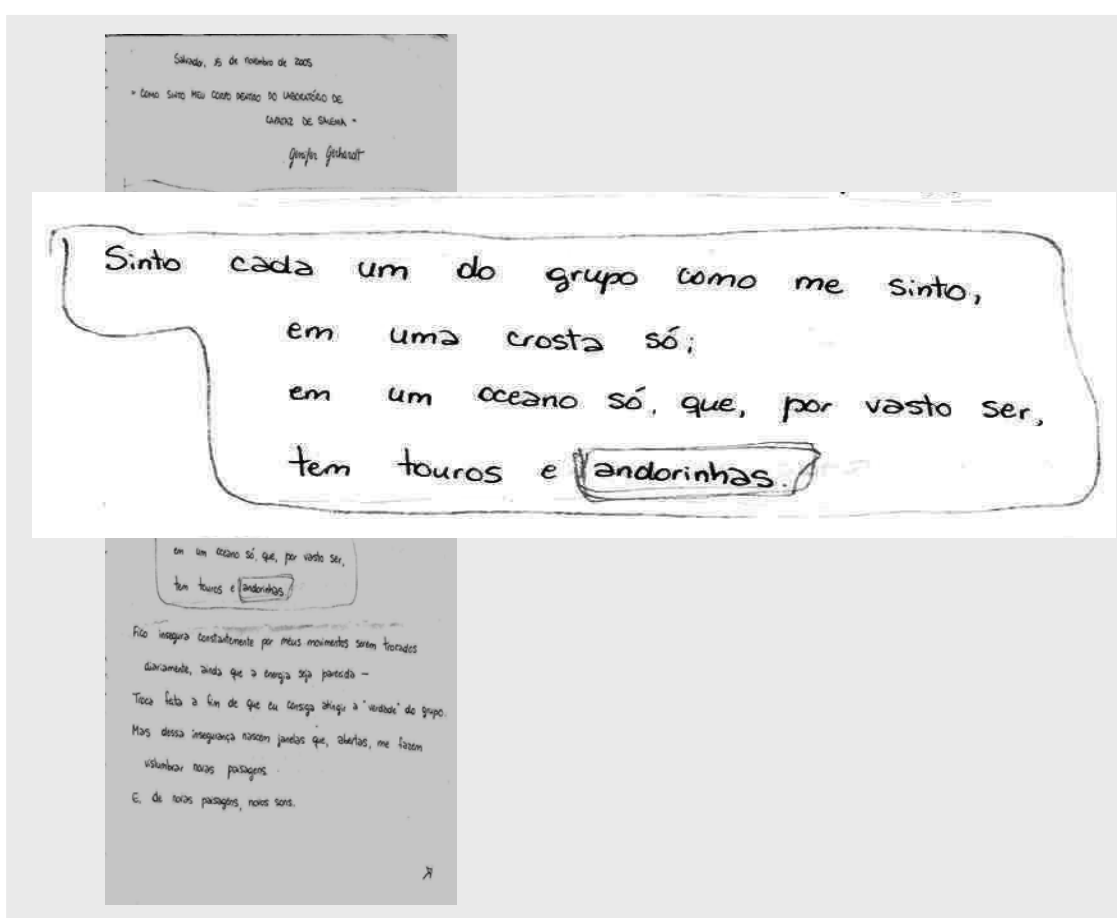 Salvador, 15 de novembro de 2005
" COMO SINTO MEU CORPO DENTRO DO LABORATÓRIO DE
DE SALEMA "
Gerhardt
Sinto cada um do grupo como me sinto,
em uma crosta só;
em um oceano só, que, por vasto ser,
tem touros e andorinhas.
em um oceano só, que, por vasto ser,
tem touros e andorinhas.
Fico insegura constantemente por meus movimentos serem trocados
diariamente, ainda que a energia seja parecida –
Troca feita a fim de que eu consiga atingir a "verdade" do grupo.
Mas dessa insegurança nascem janelas que, abertas, me fazem
vislumbrar novas paisagens.
E, de novas paisagens, novos sons.